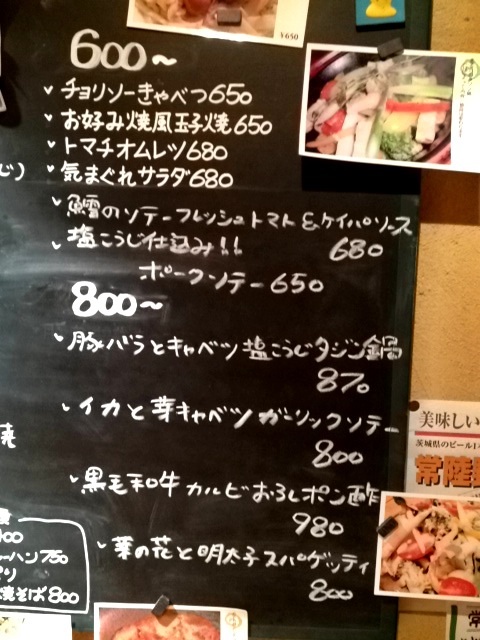 ¥650
600〜
チョリソーきゃべつ650
お好み焼風玉子焼650
トマチオムレツ680
気まぐれサラダ680
鱈のソテーフレッシュトマト&ケイパソース
680
塩こうじ仕込み!!
ポークソテー650
800〜
豚バラとキャベツ塩こうじタジン鍋
870
イカと芽キャベツガーリックソテー
800
黒毛和牛カルビおろしポン酢
980
菜の花と明太子スパゲッティ
800
じ)
焼
ーハン750
焼そば800
美味しい
茨城県のビール
常陸